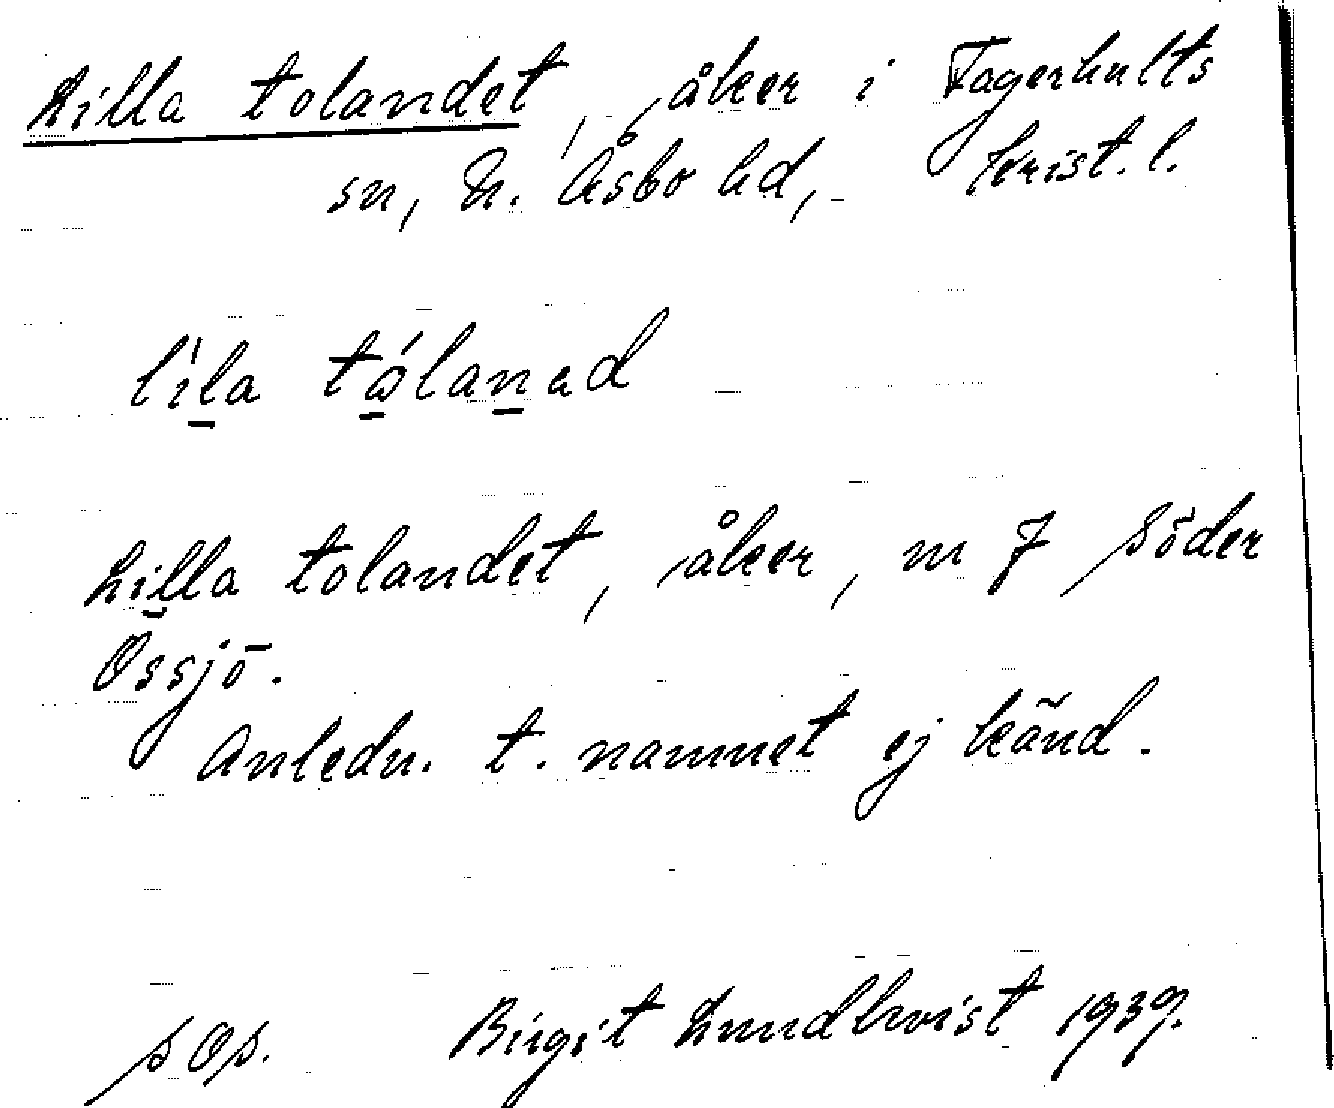 Lilla tolandet, åker i Fagerhults
sn, N. Åsbo hd, Krist. l.
líla tólanad
Lilla tolandet, åker, m 7 Söder
Össjö.
Anledn. t. namnet ej känd.
s Os. Birgit Lundkvist 1939.